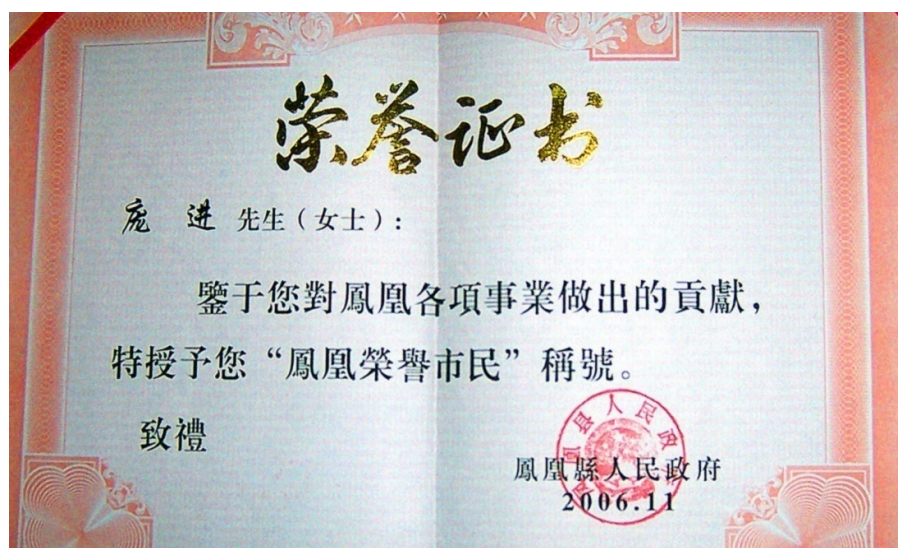 荣誉证书
庞 进 先生（女士）：
鑒于您對鳳凰各項事業做出的貢獻，
特授予您“鳳凰榮譽市民”稱號。
致禮
凰县人民政
鳳凰縣人民政府
2006.11